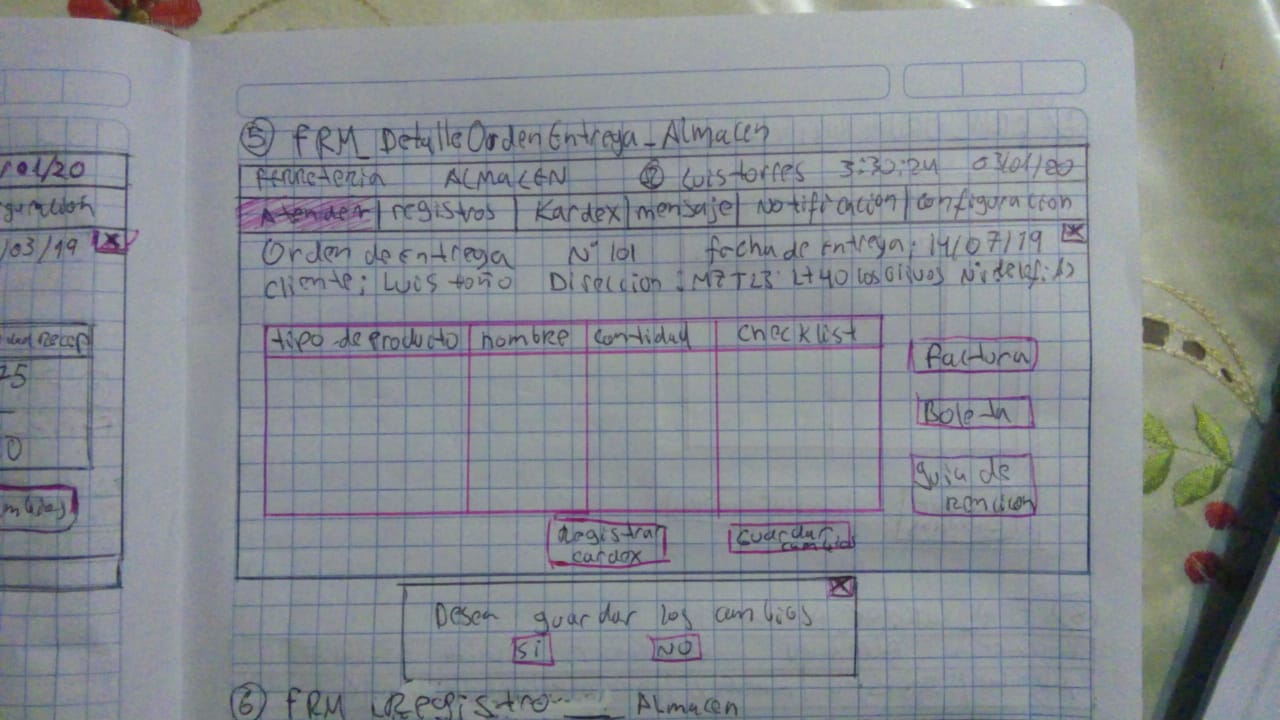 01/20
/03/19 X
75
0
5 FRM_DetalleOrdenEntrega_Almacen
Ferreteria ALMACEN Luis torres 3:30:24 03/01/20
Atender registros Kardex mensaje Notificacion configuracion
Orden de Entrega N° 101 fecha de Entrega: 14/07/19 X
cliente: Luis toño Direccion: Mz TL3 Lt 40
tipo de producto nombre cantidad checklist
factura
Boleta
guia de
remcion
Registrar
cardex
Guardar
cambios
X
Desea guardar los cambios
Si NO
6 FRM Registro Almacen